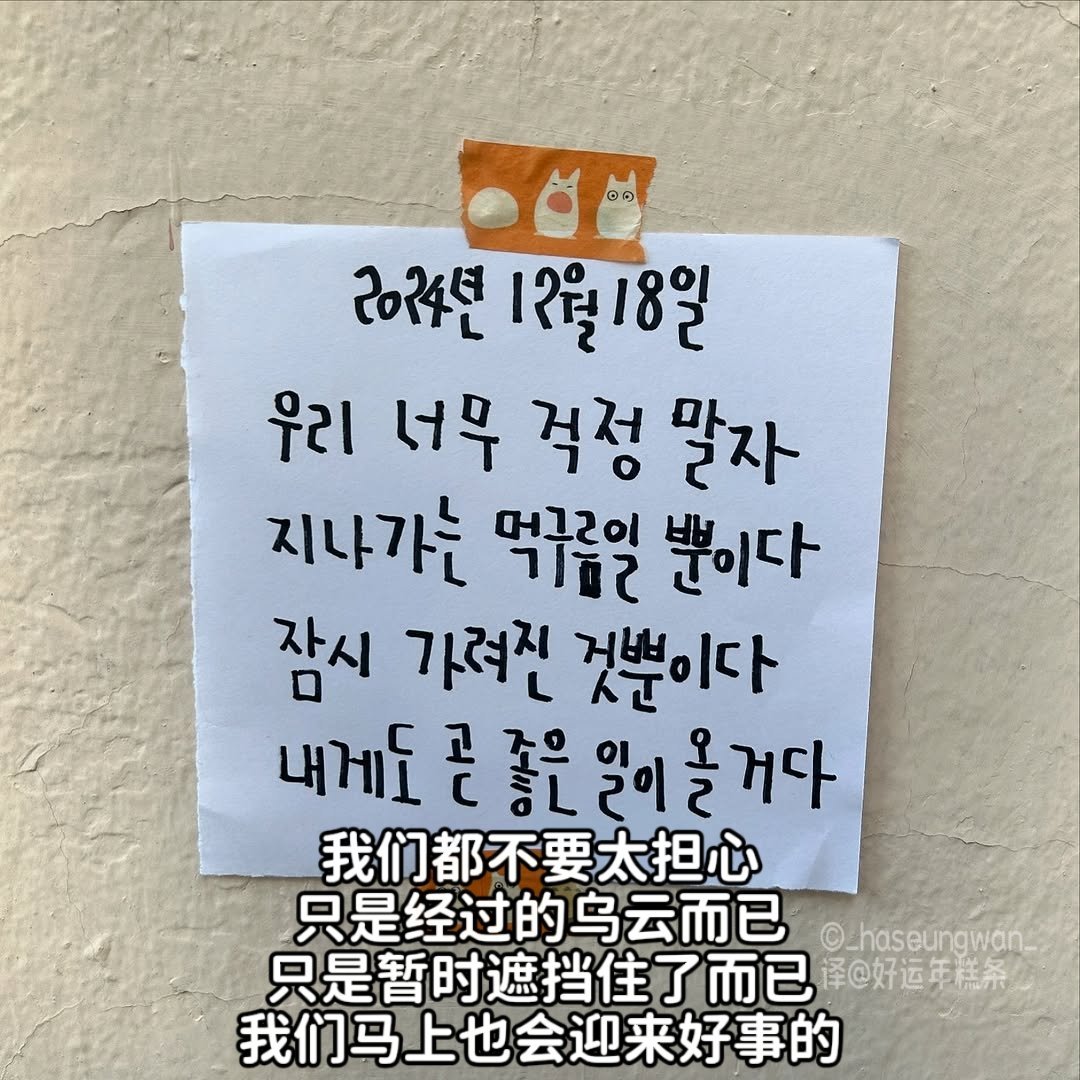 2024년 12월 18일
우리 너무 걱정 말자
지나가는 먹구름일 뿐이다
잠시 가려진 것뿐이다
내게도 곧 좋은 일이 올 거다
我们都不要太担心
只是经过的乌云而已
只是暂时遮挡住了而已
我们马上也会迎来好事的
©_haseungwan_
译@好运年糕条